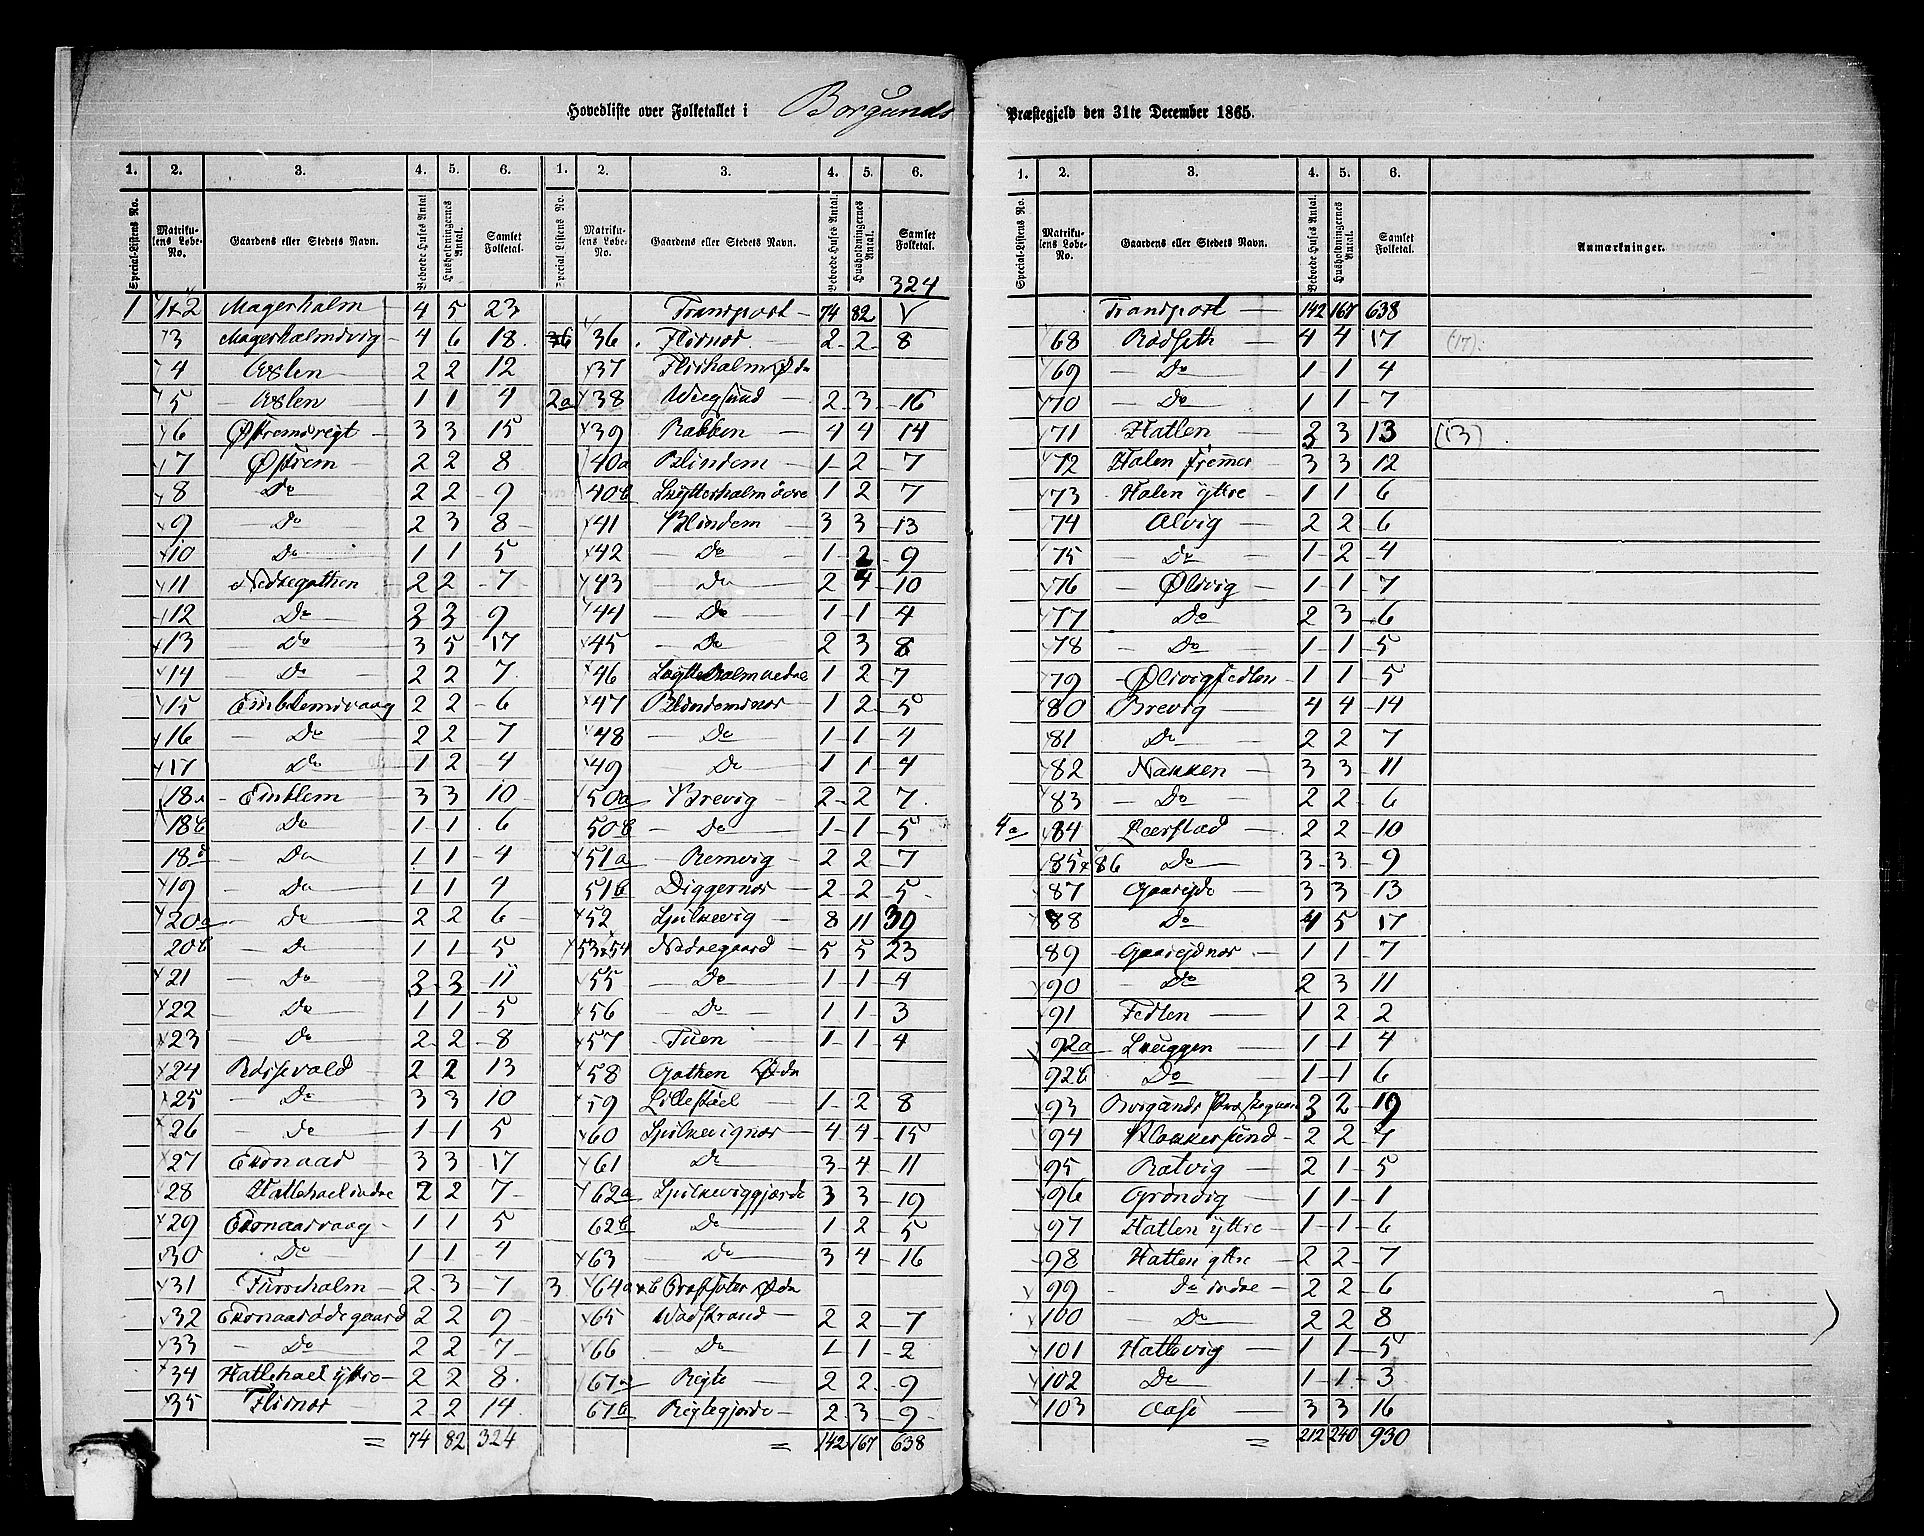 Hovedliste over Folketallet i Borgunds Præstegjeld den 31te December 1865.
1. 2. 3. 4. 5. 6. 1. 2. 3. 4. 5. 6.
Special-Listens No. Matrikulens Løbe-No. Gaardens eller Stedets Navn. Beboede Huses Antal. Husholdningernes Antal. Samlet Folketal. Special-Listens No. Matrikulens Løbe-No. Gaardens eller Stedets Navn. Beboede Huses Antal. Husholdningernes Antal. Samlet Folketal.
324
1 1+2 Magerholm 4 5 23
3 Magerholmsvig 4 6 18
4 Eslen 2 2 12
5 Eslen 1 1 4
6 Østremsregt 3 3 15
7 Østrem 2 2 8
8 Do 2 2 9
9 Do 2 3 8
10 Do 1 1 5
11 Nedregotten 2 2 7
12 Do 3 3 9
13 Do 3 5 17
14 Do 2 2 7
15 Emblemsvaag 2 2 6
16 Do 2 2 7
17 Do 1 2 4
18a Emblem 3 3 10
18b Do 1 1 6
18c Do 1 1 4
19 Do 1 1 4
20a Do 2 2 6
20b Do 1 1 5
21 Do 3 3 11
22 Do 1 1 5
23 Do 2 2 8
24 Røssevold 2 2 13
25 Do 3 3 10
26 Do 1 1 5
27 Eidnaad 3 3 17
28 Hatlehael indre 2 2 7
29 Eidnaasvaag 1 1 5
30 Do 1 1 4
31 Furreholm 2 3 7
32 Eidnaasødegaard 2 2 9
33 Do 2 2 7
34 Hatlehael yttre 2 2 8
35 Flisnæs 2 2 14
= 74 82 324
Transport 74 82
36 Flisnæs 2 2 8
37 Flisholm Øde
2a 38 Veegsund 2 3 16
39 Rabben 4 4 14
40a Blindem 1 2 7
40b Lyttesholm øvre 1 2 7
41 Blindem 3 3 13
42 Do 1 2 9
43 Do 2 4 10
44 Do 1 1 4
45 Do 2 3 8
46 Lytteholm nedre 1 2 7
47 Blindemsnæs 1 2 5
48 Do 1 1 4
49 Do 1 1 4
50a Brevig 2 2 7
50b Do 1 1 5
51a Remvig 2 2 7
51b Diggernæs 2 2 5
52 Spilkevig 8 11 30
53+54 Nedregaard 5 5 23
55 Do 1 1 4
56 Do 1 1 3
57 Tuen 1 1 4
58 Gotten Øde
59 Lillestøel 1 2 8
60 Spilkevignæs 4 4 15
61 Do 3 4 11
62a Spilkeviggjærde 3 3 19
62b Do 1 2 5
63 Do 3 4 16
3 64a+b Øde
65 Vadstrand 2 2 7
66 Do 1 1 2
67a Reite 2 2 9
67b Reitegjerde 2 3 9
= 142 167 638
1. 2. 3. 4. 5. 6.
Special-Listens No. Matrikulens Løbe-No. Gaardens eller Stedets Navn. Beboede Huses Antal. Husholdningernes Antal. Samlet Folketal. Anmærkninger.
Transport 142 167 638
68 Rødseth 4 4 17 (17)
69 Do 1 1 4
70 Do 1 1 7
71 Hatlen 3 3 13 (13)
72 Holen fremer 3 3 12
73 Holen yttre 1 1 6
74 Alvig 2 2 6
75 Do 1 2 4
76 Ølsvig 1 1 7
77 Do 2 3 6
78 Do 1 1 5
79 Ølsvigfedlen 1 1 5
80 Brevig 4 4 14
81 Do 2 2 7
82 Nakken 3 3 11
83 Do 2 2 6
4a 84 Leerstad 2 2 10
85+86 Do 3 3 9
87 Gaaseide 3 3 13
88 Do 4 5 17
89 Gaaseidnæs 1 1 7
90 Do 2 3 11
91 Fedlen 1 2 2
92a Skuggen 1 1 4
92b Do 1 1 6
93 Borgunds Præstegaard 3 2 19
94 Klokkersund 2 2 7
95 Ratvig 2 1 5
96 Grønvig 1 1 1
97 Hatlen yttre 1 1 6
98 Hatlen yttre 2 2 7
99 Do indre 2 2 6
100 Do 2 2 8
101 Hatlevig 1 1 5
102 Do 1 1 3
103 Aase 3 3 16
= 212 240 930